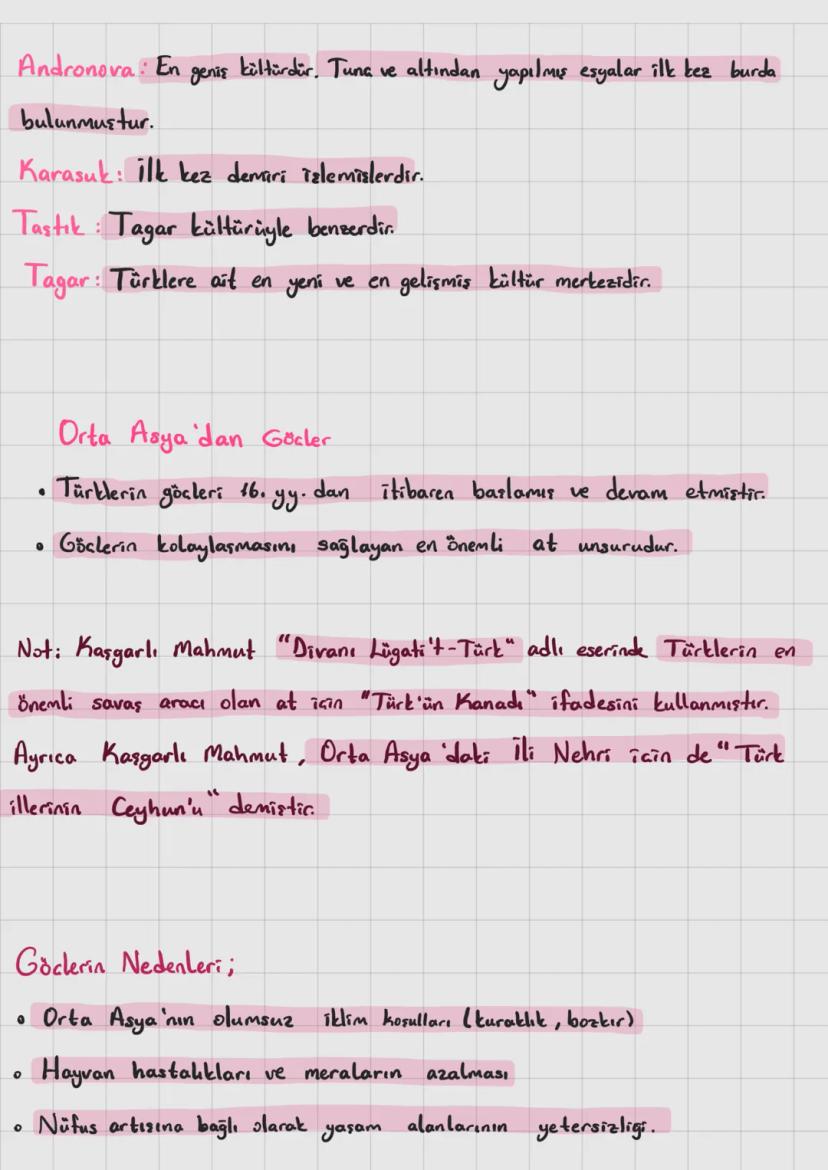 Andronova: En geniş kültürdür. Tunç ve altından yapılmış eşyalar ilk kez burda
bulunmuştur.
Karasuk: İlk kez demiri işlemişlerdir.
Taştık: Tagar kültürüyle benzerdir.
Tagar: Türklere ait en yeni ve en gelişmiş kültür merkezidir.
Orta Asya'dan Göçler
• Türklerin göçleri 16. yy. dan itibaren başlamış ve devam etmiştir.
• Göçlerin kolaylaşmasını sağlayan en önemli at unsurudur.
Not: Kaşgarlı Mahmut "Divanı Lügati't-Türk" adlı eserinde Türklerin en
önemli savaş aracı olan at için "Türk'ün Kanadı" ifadesini kullanmıştır.
Ayrıca Kaşgarlı Mahmut, Orta Asya'daki İli Nehri için de "Türk
illerinin Ceyhun'u" demiştir.
Göçlerin Nedenleri;
• Orta Asya'nın olumsuz iklim koşulları (kuraklık, bozkır)
• Hayvan hastalıkları ve meraların azalması
• Nüfus artışına bağlı olarak yaşam alanlarının yetersizliği.